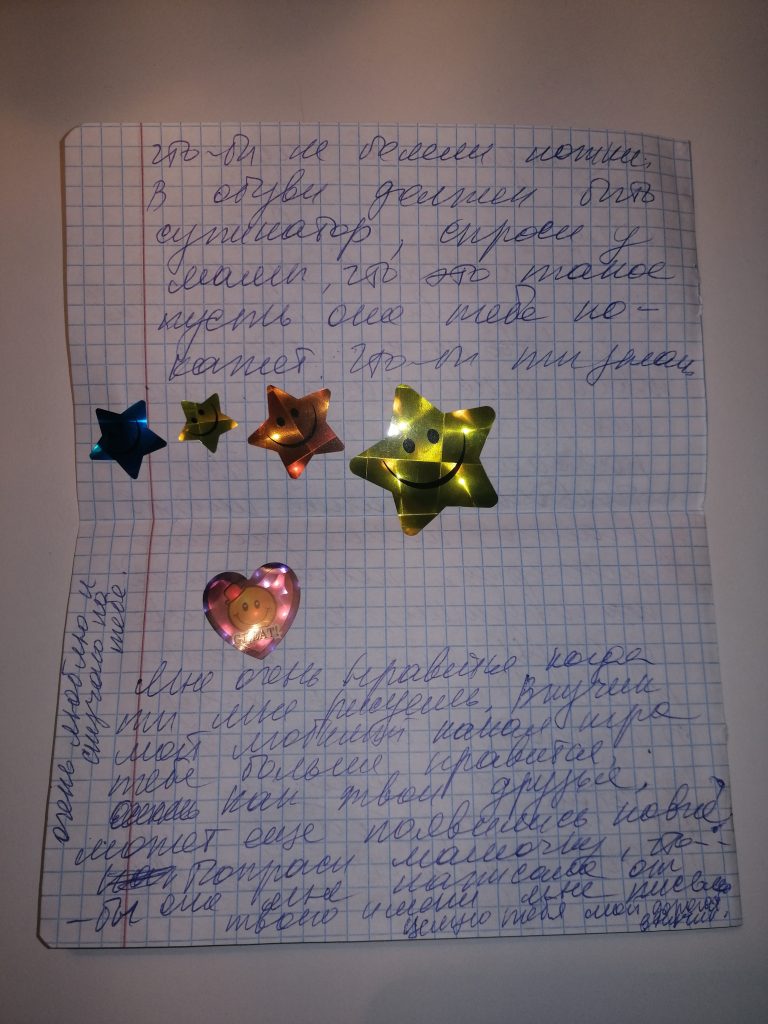 что-бы не болели ножки.
В обуви должен быть
супинатор, спроси у
мамы, что это такое
пусть она тебе по-
кажет. Что-бы ты
GREAT!
очень люблю и
скучаю по
тебе.
Мне очень нравится когда
ты мне рисуешь. Внучек
мой любимый какая игра
тебе больше нравится,
как твои друзья,
может еще появились новые?
Попроси мамочку, что-
-бы она мне написала от
твоего имени мне письмо
целую тебя мой дорогой
внучек.